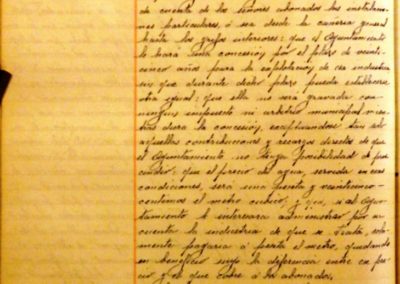 de cuenta de los señores abonados las instalacio-
nes particulares, ó sea desde la cañeria general
hasta los grifos interiores: que el Ayuntamiento
le hará una concesión por el plazo de veinti-
cinco años para la explotación de esa industria
sin que durante dicho plazo pueda establecerse
otra igual: que ella no será gravada con
ningun impuesto ni arbitrio municipal mien-
tras dure la concesión, exceptuandose tan solo
aquellas contribuciones y recargos directos de que
el Ayuntamiento no tenga posibilidad de pres-
cindir: que el precio del agua, servida en esas
condiciones, será una peseta y veinticinco
centimos el metro cubico: y que, si al Ayun-
tamiento le interesara administrar por su
cuenta la industria de que se trata, sola-
mente pagaria á peseta el metro, quedando
en beneficio suyo la diferencia entre ese pre-
cio y el que cobre á los abonados.